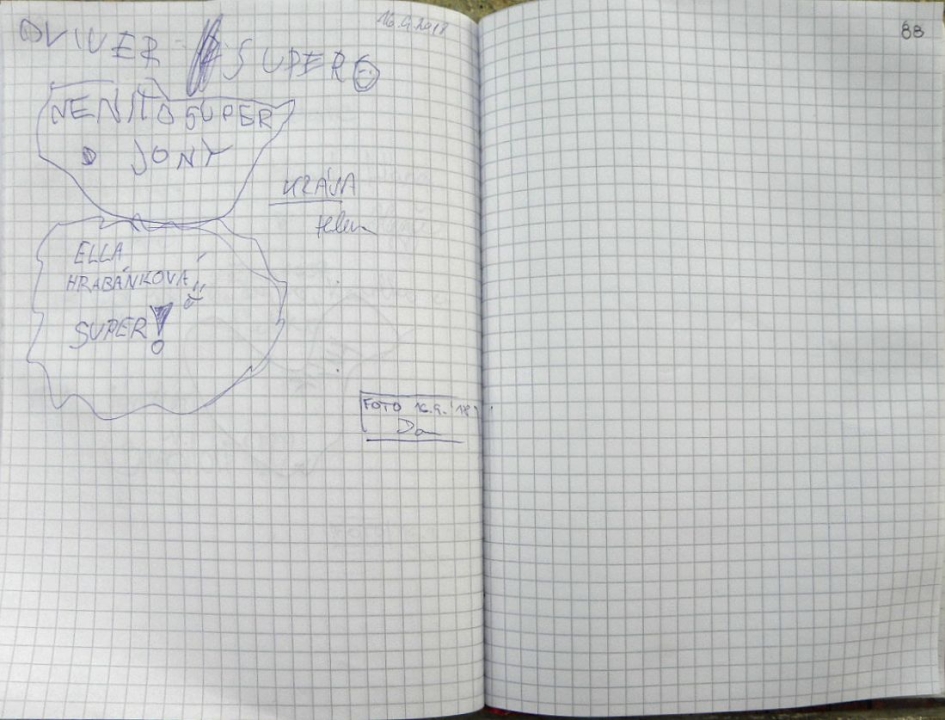 16.9.2018
OLIVER SUPER
NENÍ TO SUPER
JONY
KRÁSA
Helena
ELLA
HRABÁNKOVÁ!!
SUPER!
FOTO 16.9.'18
Da
88